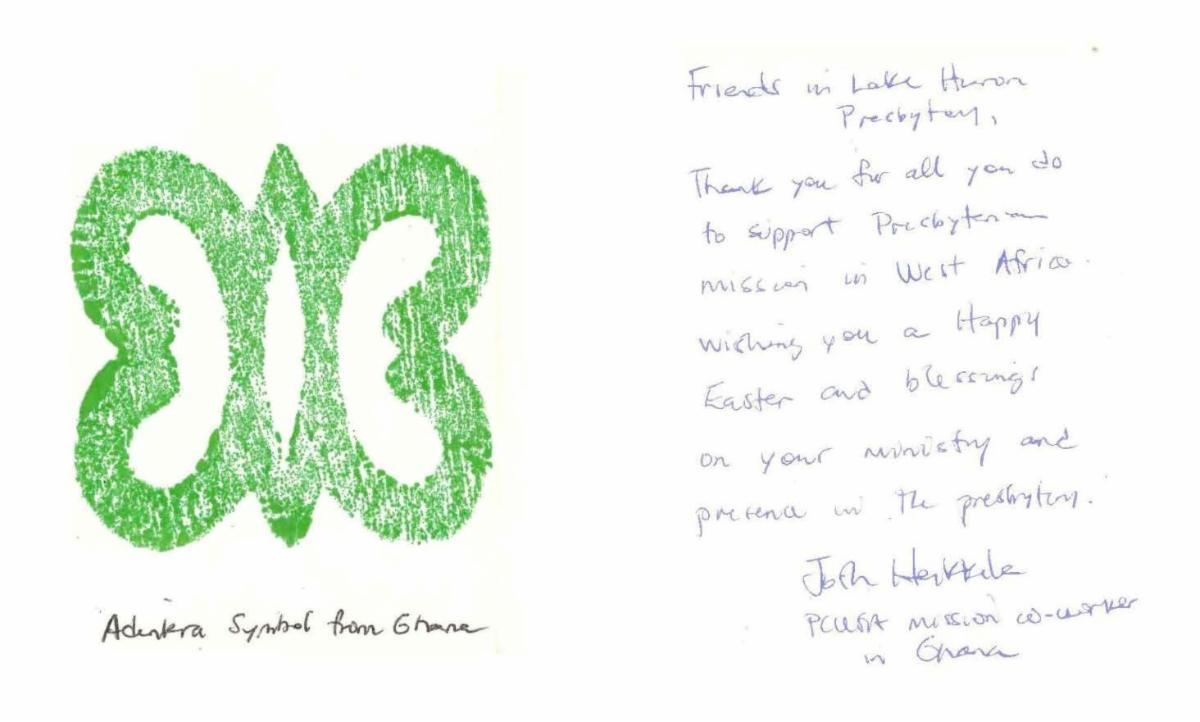 Adinkra Symbol from Ghana
Friends in Lake Huron
Presbytery,
Thank you for all you do
to support Presbyterian
mission in West Africa.
Wishing you a Happy
Easter and blessings
on your ministry and
presence in the presbytery.
Josh Heikkila
PCUSA mission co-worker
in Ghana